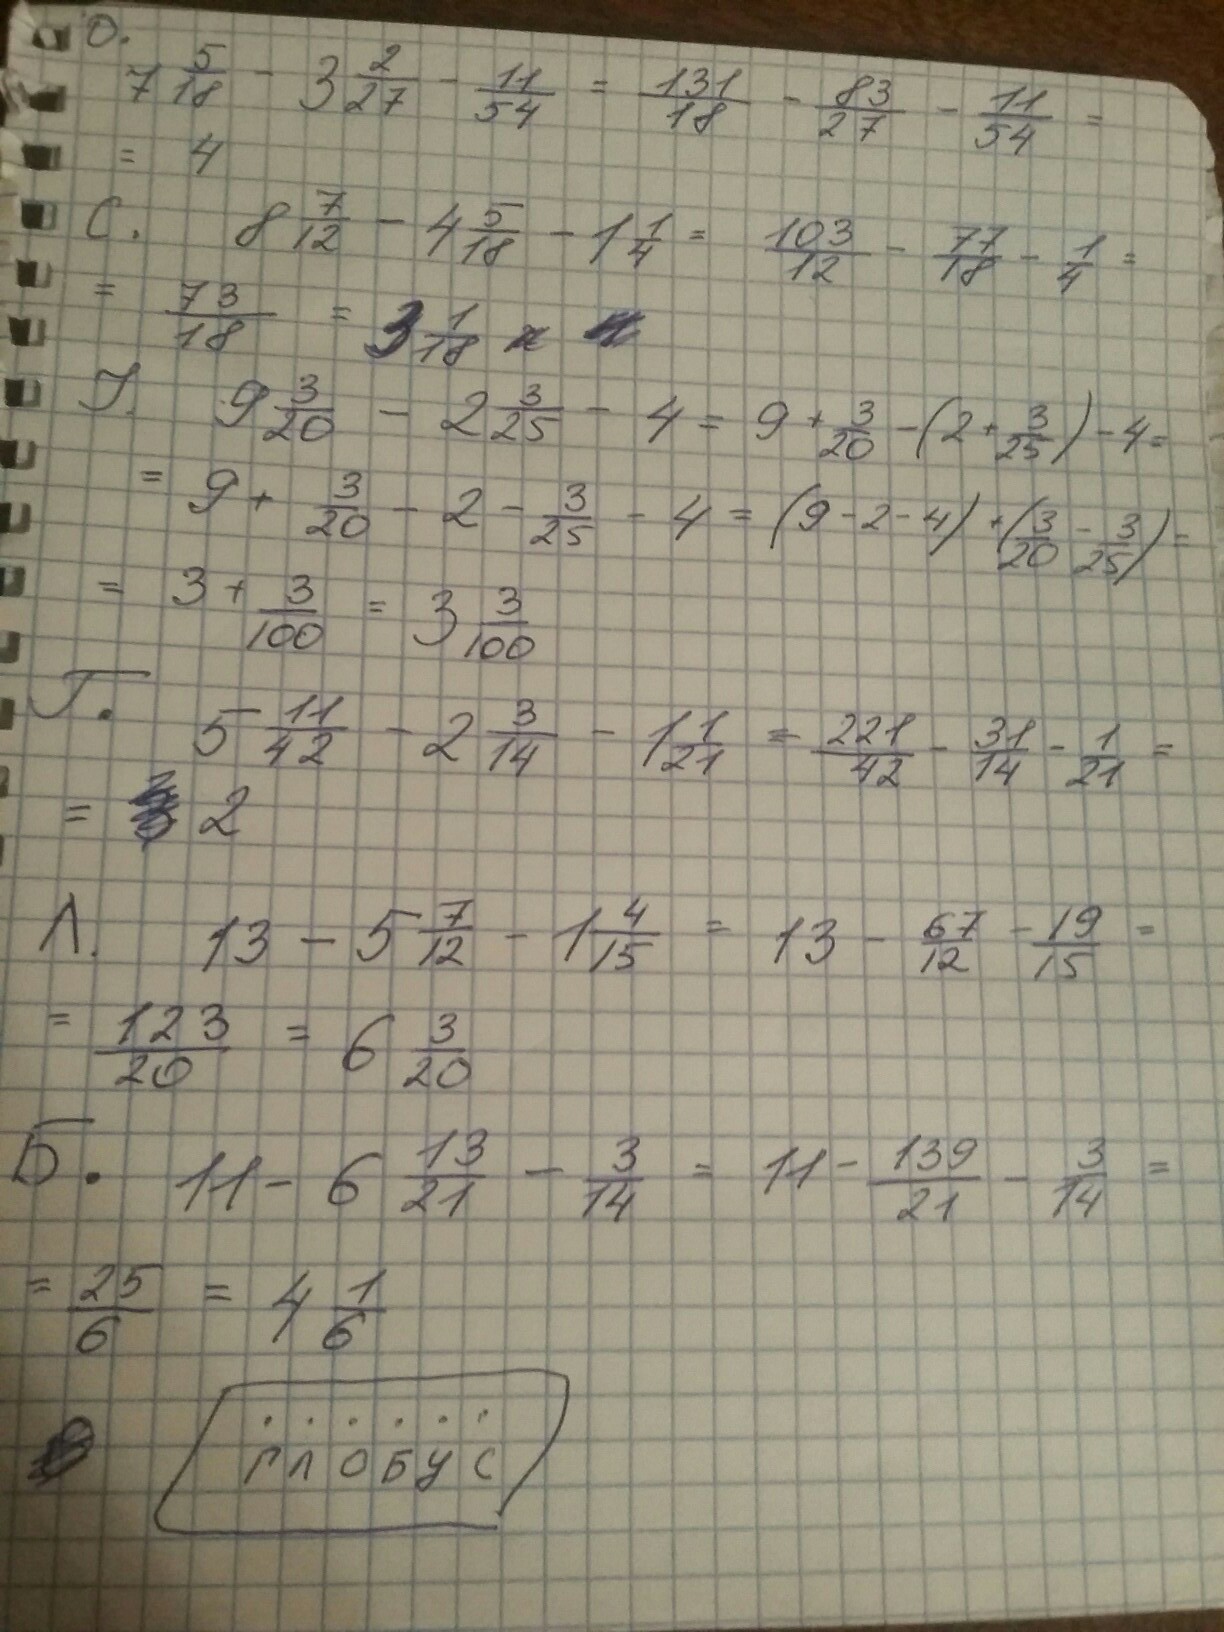 О.
7 5/18 - 3 2/27 - 11/54 = 131/18 - 83/27 - 11/54 =
= 4
С. 8 7/12 - 4 5/18 - 1 1/4 = 103/12 - 77/18 - 1/4 =
= 73/18 = 3 1/18
У. 9 3/20 - 2 3/25 - 4 = 9 + 3/20 - (2 + 3/25) - 4 =
= 9 + 3/20 - 2 - 3/25 - 4 = (9 - 2 - 4) + (3/20 - 3/25) =
= 3 + 3/100 = 3 3/100
Г. 5 11/42 - 2 3/14 - 1 1/21 = 221/42 - 31/14 - 1/21 =
= 2
Л. 13 - 5 7/12 - 1 4/15 = 13 - 67/12 - 19/15 =
= 123/20 = 6 3/20
Б. 11 - 6 13/21 - 3/14 = 11 - 139/21 - 3/14 =
= 25/6 = 4 1/6
ГЛОБУС